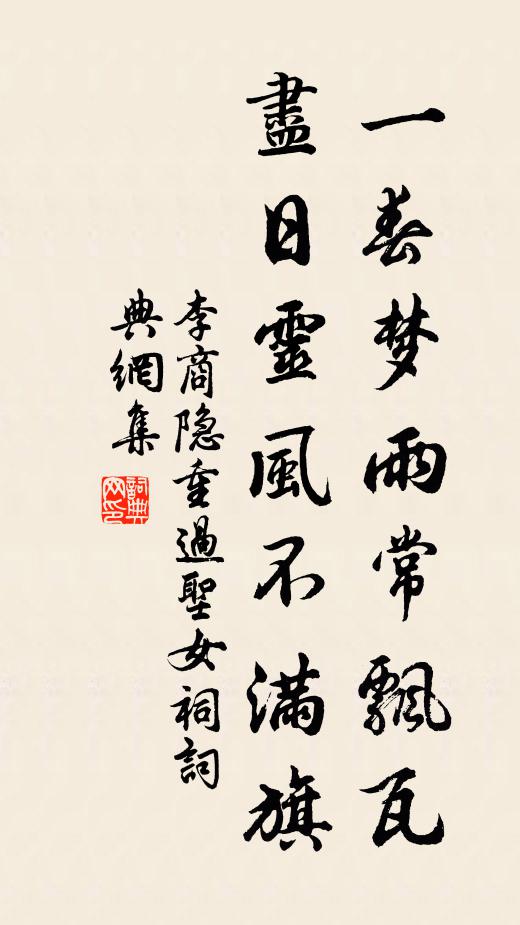 一春梦雨常飄瓦
盡日靈風不满旗
李商隐重過聖女祠詞
典網集
詞典网印